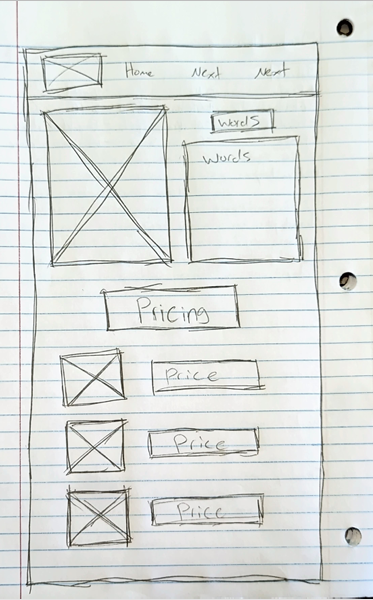 Home Next Next
Words
Words
Pricing
Price
Price
Price